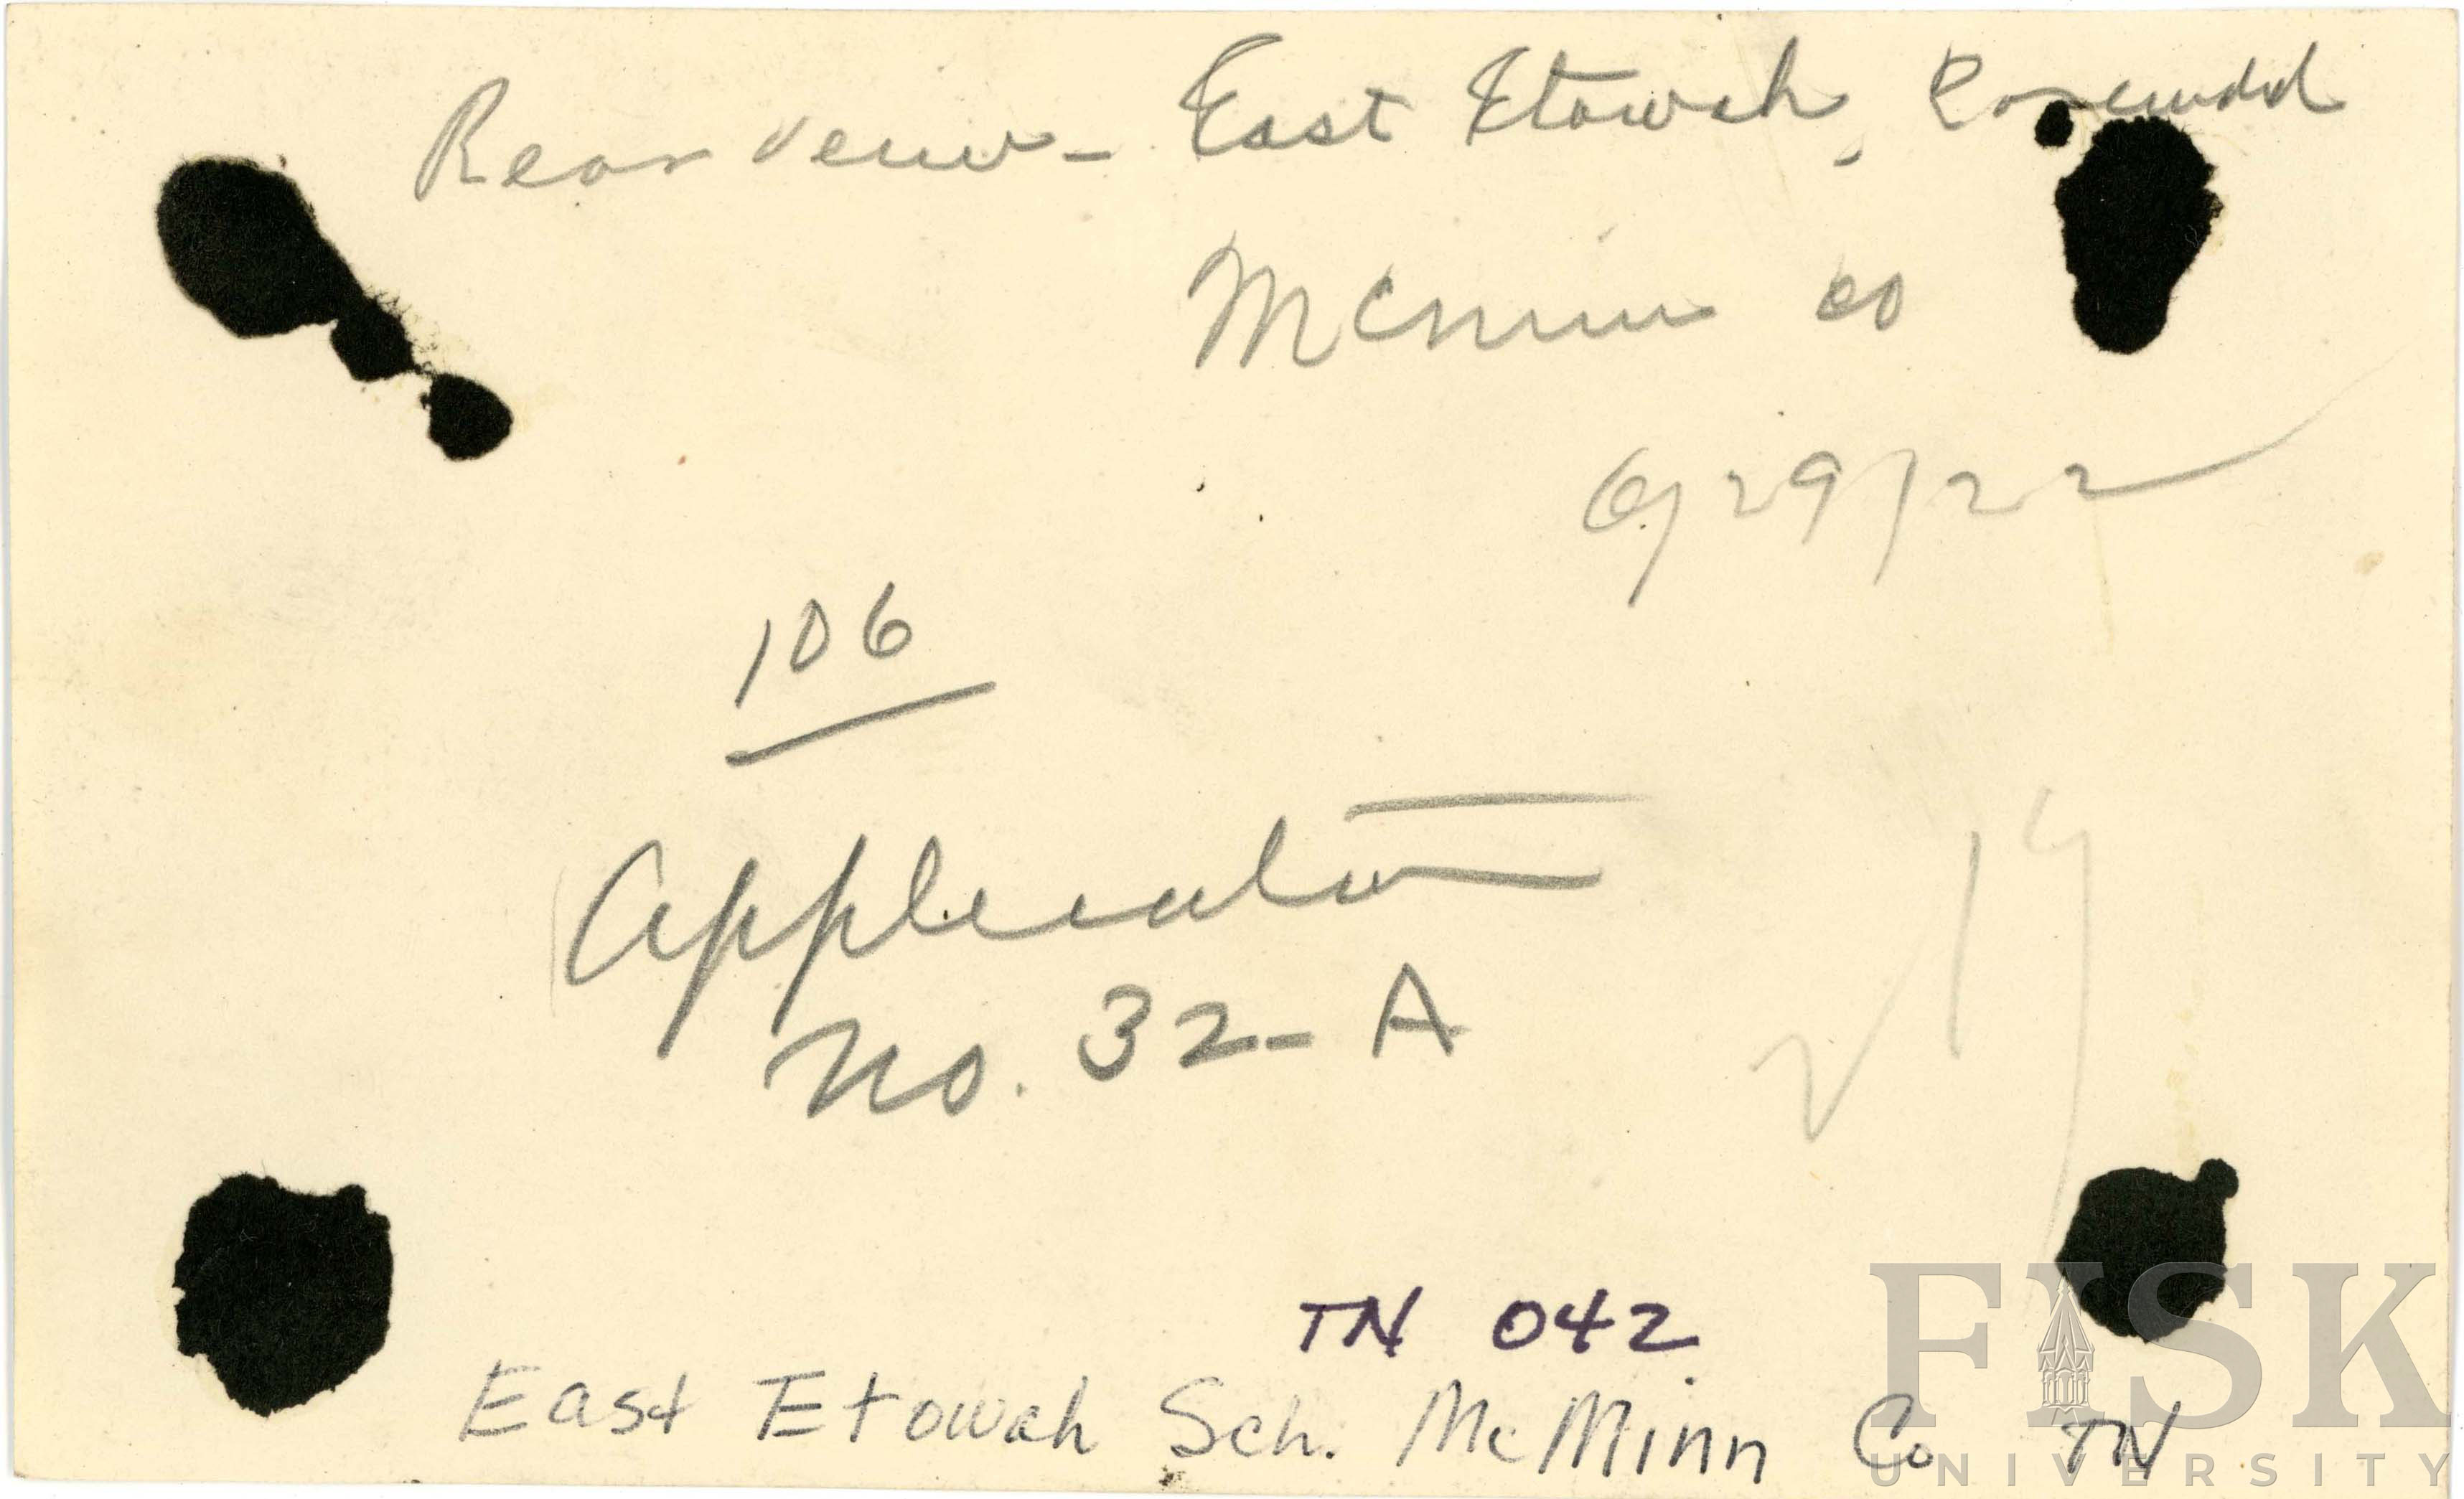 Rear view - East Etowah, Rosenwald
McMinn co
6/29/22
106
Application
No. 32-A
19
TN 042
East Etowah Sch. McMinn Co TN
FISK
UNIVERSITY